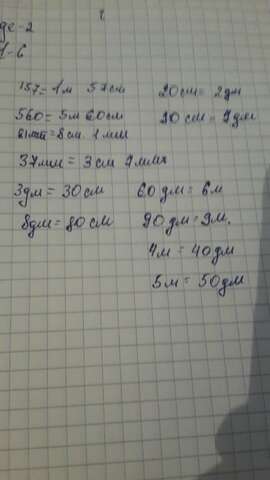 де-2
1-6
157=1м 57см 20см=2дм
560=5м 60см 90см=9дм
81мм=8см 1мм
37мм=3см 7мм
3дм=30см 60дм=6м
8дм=80см 90дм=9м.
4м=40дм
5м=50дм